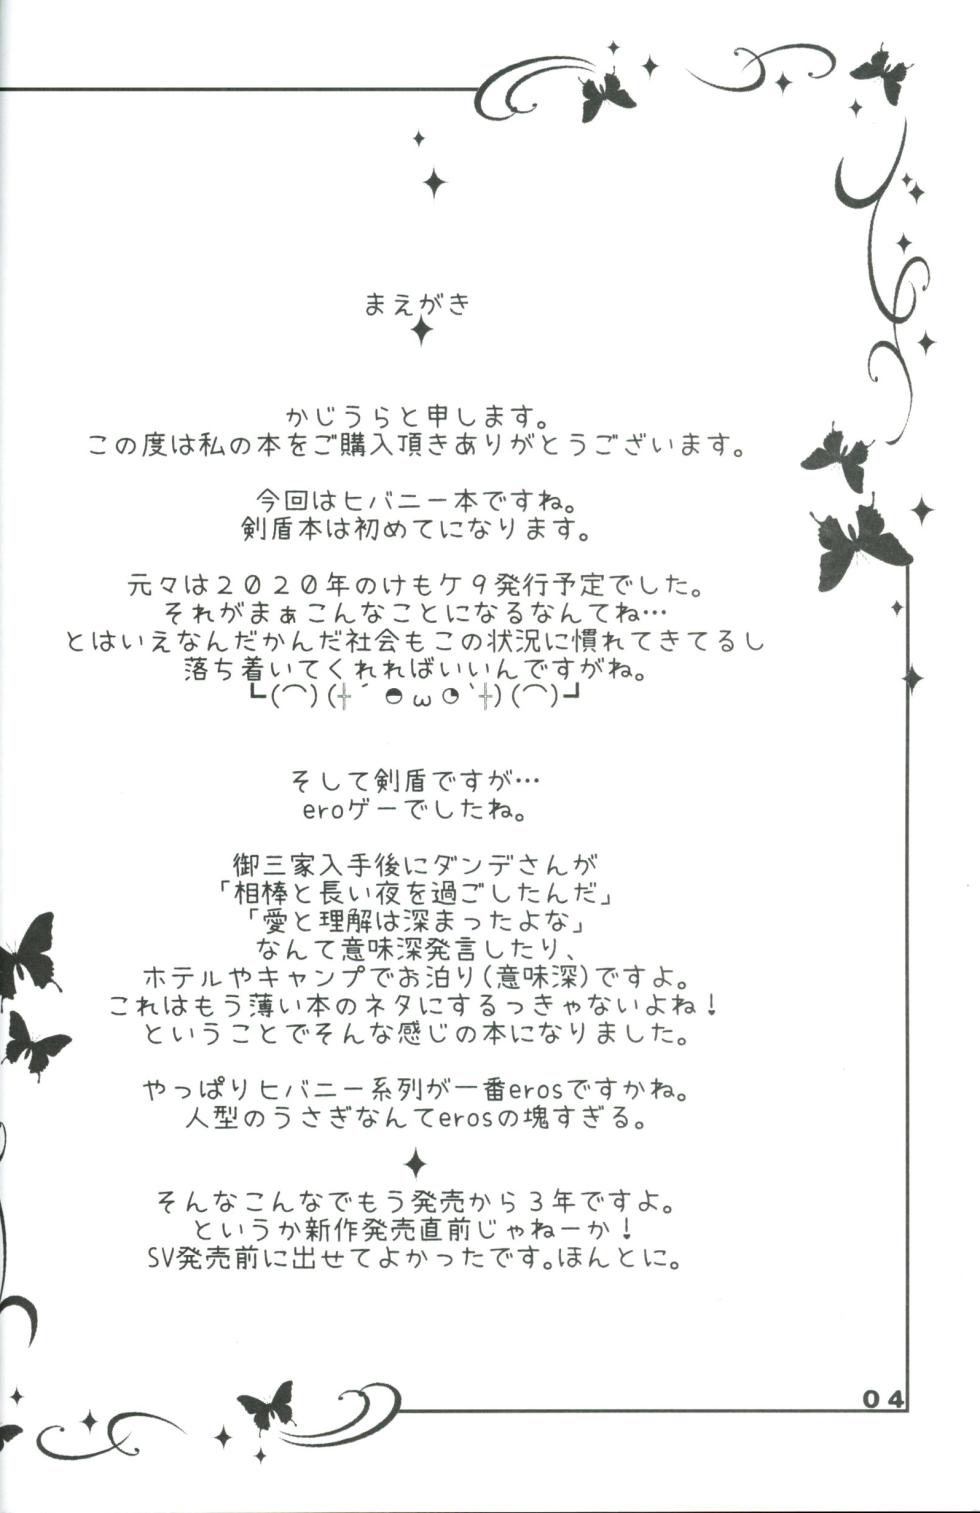 まえがき
かじうらと申します。
この度は私の本をご購入頂きありがとうございます。
今回はヒバニー本ですね。
剣盾本は初めてになります。
元々は2020年のけもケ9発行予定でした。
それがまぁこんなことになるなんてね…
とはいえなんだかんだ社会もこの状況に慣れてきてるし
落ち着いてくれればいいんですがね。
┗(⌒)(╬´◓ω◔`╬)(⌒)┛
そして剣盾ですが…
eroゲーでしたね。
御三家入手後にダンデさんが
「相棒と長い夜を過ごしたんだ」
「愛と理解は深まったよな」
なんて意味深発言したり、
ホテルやキャンプでお泊り(意味深)ですよ。
これはもう薄い本のネタにするっきゃないよね！
ということでそんな感じの本になりました。
やっぱりヒバニー系列が一番erosですかね。
人型のうさぎなんてerosの塊すぎる。
そんなこんなでもう発売から3年ですよ。
というか新作発売直前じゃねーか！
SV発売前に出せてよかったです。ほんとに。
04